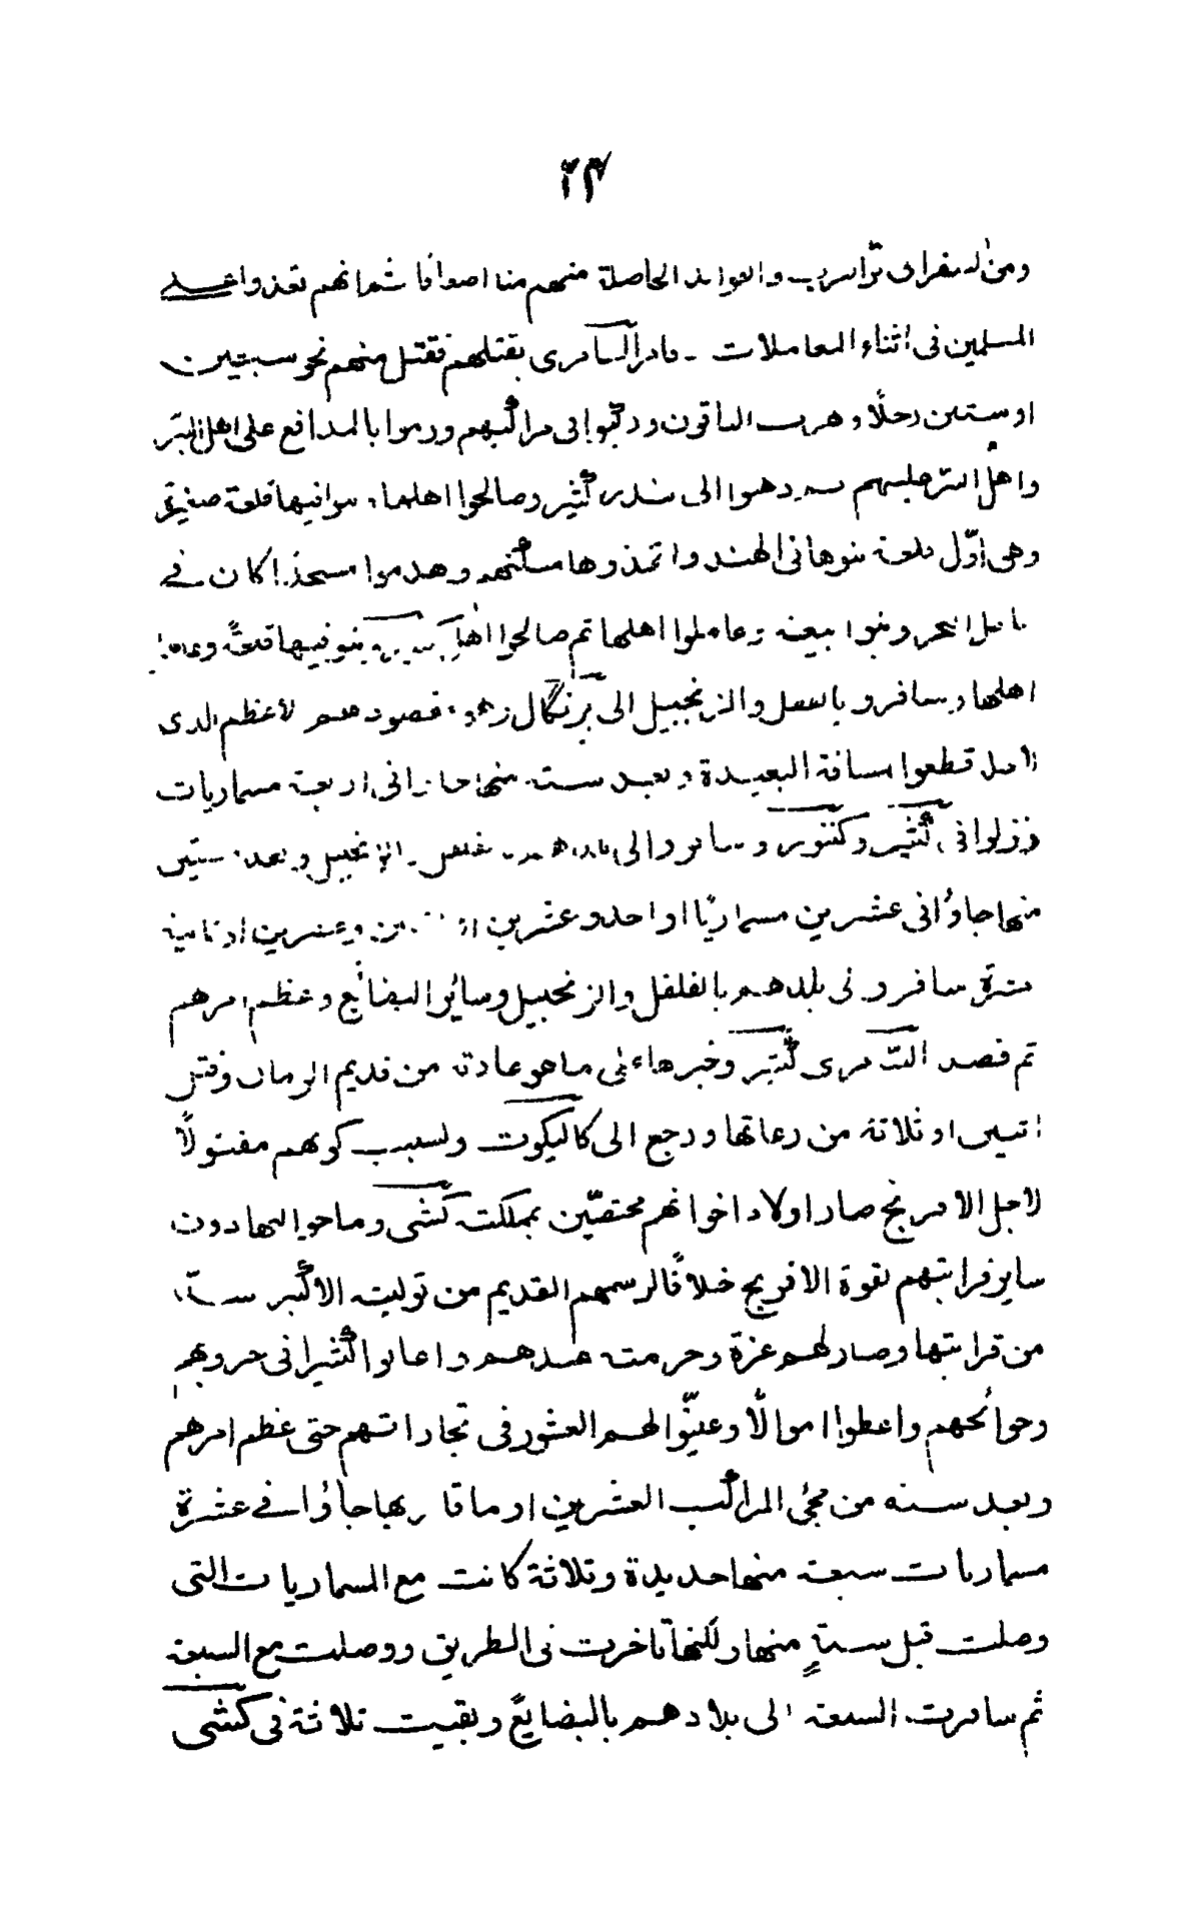 ٢٣
والفوايد الحاصلة منهم اضعافا ثم انهم تعدوا على
المسلمين فى اثناء المعاملات فامر السامرى بقتلهم فقتل منهم نحو سبعين
او ستين رجلًا وهرب الباقون وركبوا فى مراكبهم ورموا بالمدافع على اهل البَر
واهل البر عليهم الى بندر كُشى وصالحوا اهلها وبنوا فيها قلعة صغيرة
وهى اوّل قلعة بنوها فى الهند واتخذوها وهدموا مسجدًا كان فى
ساحل البحر وبنوا بيعة وعاملوا اهلها ثم صالحوا اهل وبنو فيها قلعةً وعاملوا
اهلها وسافرو بالفلفل والزنجبيل الى پرتكال الاعظم الذى
لاجله قطعوا مسافة البعيدة وبعد سنة منها جاؤا فى اربعة مسماريات
ونزلوا فى كشى وكننور وسافروا الى بلادهم بفلفل والزنجبيل وبعد سنتين
منها جاؤا فى عشرين مسماريًا او احد وعشرين او اثنين وعشرين او ثمانية
سافرو الى بلدهم بالفلفل والزنجبيل وساير البضائع وعظم امرهم
ثم قصد السامرى كشى وخربها على ما هو عادته من قديم الزمان وقتل
اثنين او ثلاثة من رعاتها ورجع الى كاليكوت ولسبب كونهم مقتولًا
لاجل الافرنج صار اولاد اخوانهم مختصّين بمملكت كشى وما حوا اليها دون
ساير قرابتهم لقوة الافرنج خلافًا لرسمهم القديم من توليت الاكبر سنّا
من قرابتها وصار لهم عزة وحرمته عندهم واعانوا كثيرا فى حروبهم
وحوائجهم واعطوا اموالًا وعيّنوا لهم العشور فى تجاراتهم حتى عظم امرهم
وبعد سنه من مجئ المراكب العشرين او ما قاربها جاؤا فى عشرة
مسماريات سبعة منها جديدة وثلاثة كانت مع المسماريات التى
وصلت قبل سنةٍ منها ولكنها تاخرت فى الطريق ووصلت مع السبعة
ثم سافرت السبعة الى بلادهم بالبضايعَ وبقيت ثلاثة فى كشى